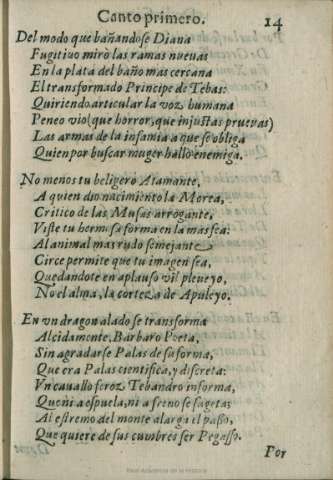 Canto primero. 14
Del modo que bañandose Diana
Fugitiuo mirò las ramas nueuas
En la plata del baño mas cercana
El transformado Principe de Tebas:
Quiriendo articular la voz humana
Peneo vio (que horror, que injustas pruevas)
Las armas de la infamia a que se obliga
Quien por buscar muger hallò enemiga.
No menos tu beligero Atamante,
A quien dio nacimiento la Morea,
Critico de las Musas arrogante,
Viste tu hermosa forma en la mas fea:
Al animal mas rudo semejante
Circe permite que tu imagen sea,
Quedandote en aplauso vil pleueyo,
No el alma, la corteza de Apuleyo.
En vn dragon alado se transforma
Alcidamente, Barbaro Poeta,
Sin agradarse Palas de su forma,
Que era Palas cientifica, y discreta:
Vn cauallo feroz Tebandro informa,
Que ni a espuela, ni a freno se sageta:
Al estremo del monte alarga el passo,
Que quiere de sus cumbres ser Pegasso.
Por
Real Academia de la Historia